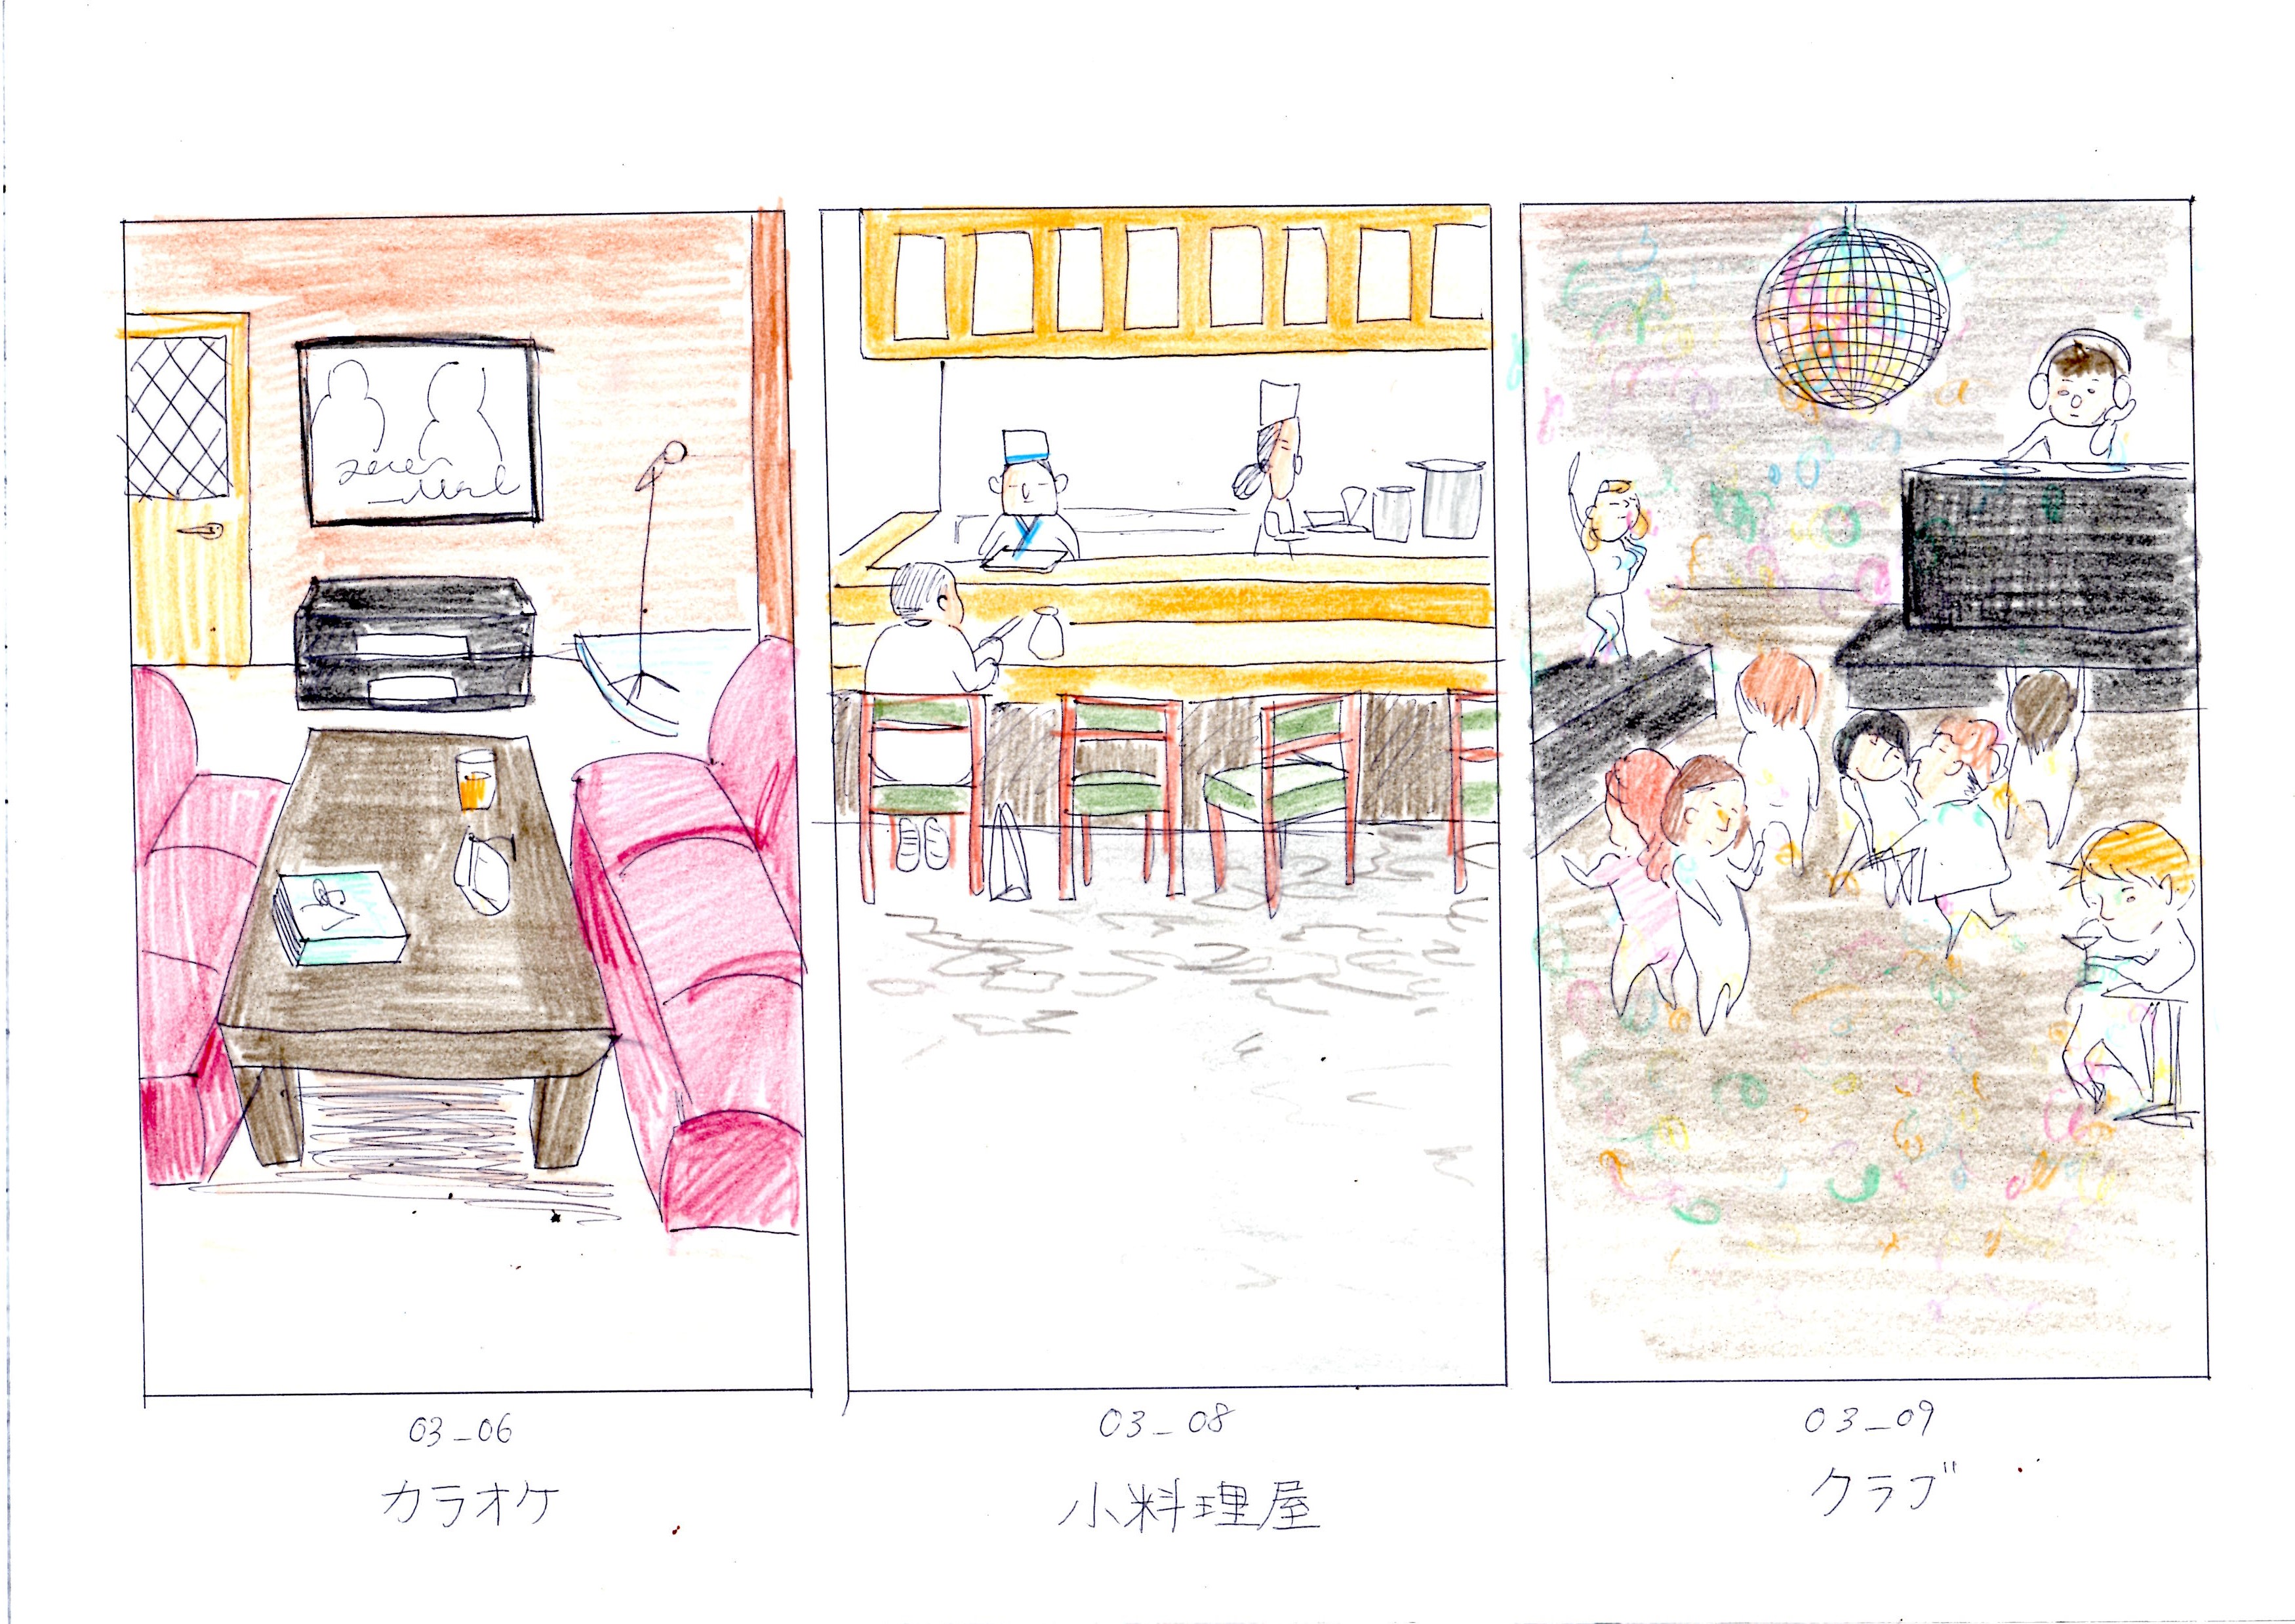 03_06
カラオケ
03_08
小料理屋
03_09
クラブ